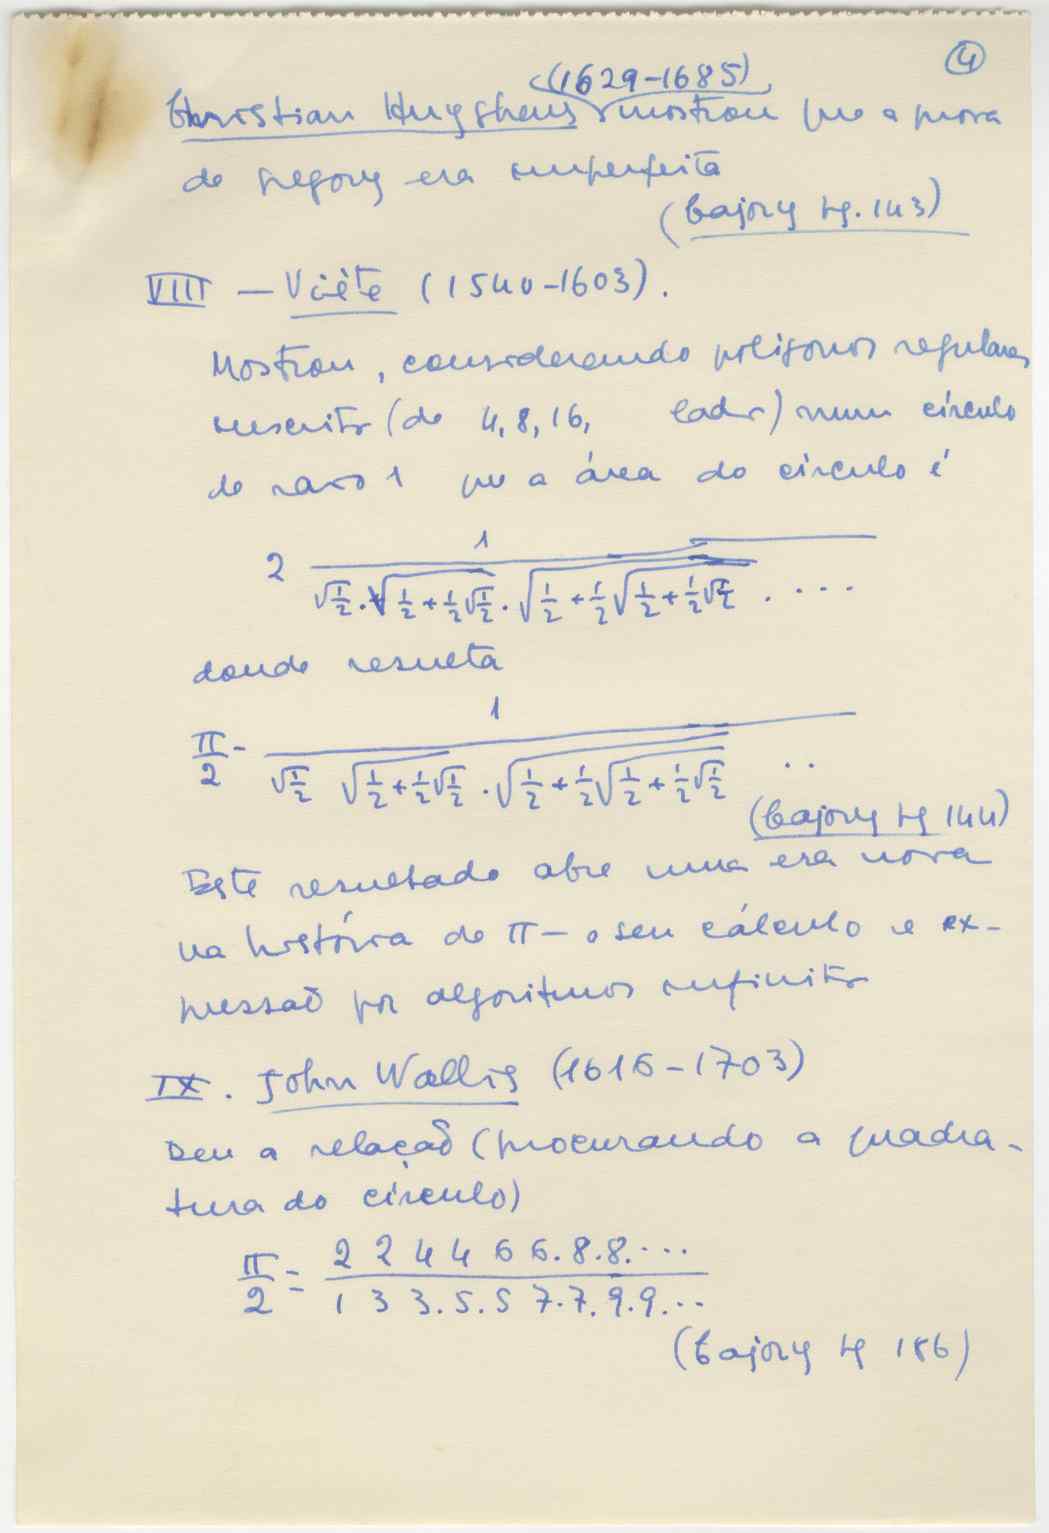 4
(1629-1685)
Christian Huyghens mostrou que a prova
de Gregory era imperfeita
(Cajory pg. 143)
VIII — Viète (1540-1603).
Mostrou, considerando polígonos regulares
inscritos (de 4, 8, 16, lados) num círculo
de raio 1 que a área do círculo é
2 1 / √1/2 . √1/2 + 1/2 √1/2 . √1/2 + 1/2 √1/2 + 1/2 √1/2 . . . . .
donde resulta
π/2 - 1 / √1/2 √1/2 + 1/2 √1/2 . √1/2 + 1/2 √1/2 + 1/2 √1/2 . .
(Cajory pg 144)
Este resultado abre uma era nova
na história de π — o seu cálculo e ex-
pressão por algoritmos infinitos
IX. John Wallis (1616-1703)
Deu a relação (procurando a quadra-
tura do círculo)
π/2 = 2 2 4 4 6 6. 8. 8. ... / 1 3 3. 5. 5 7. 7. 9. 9. ...
(Cajory pg 186)